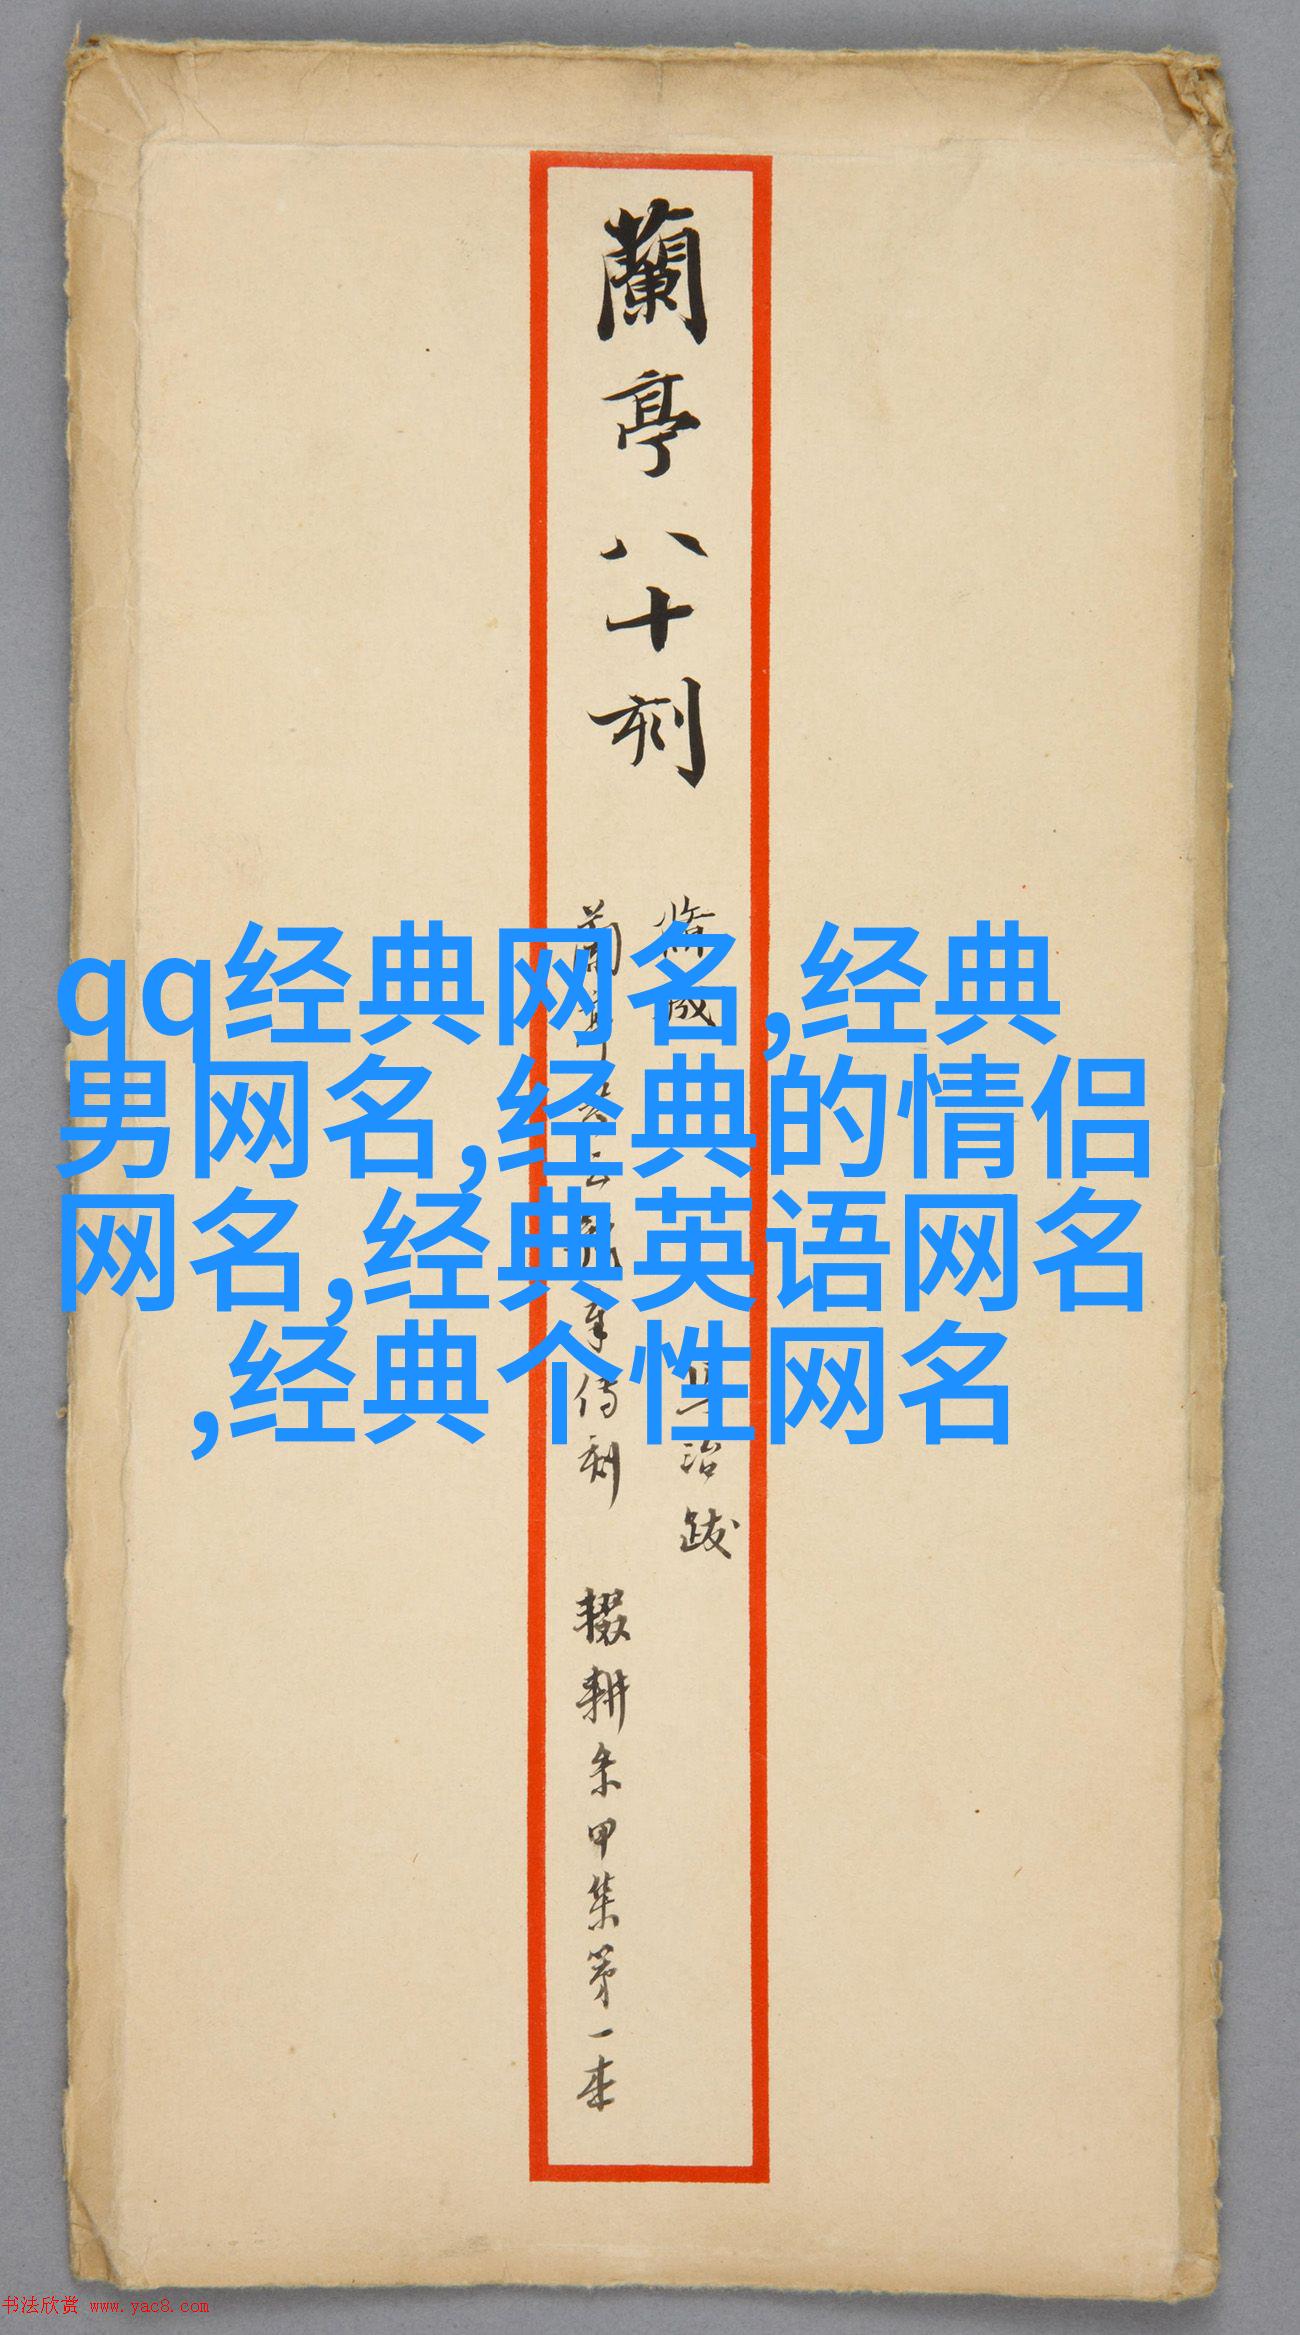 蘭亭八十刻
qq经典网名,经典
男网名,经典的情侣
网名,经典英语网名
,经典个性网名
治跋
年侍刻
輟耕
甲集第一本
书法欣赏 www.yac8.com